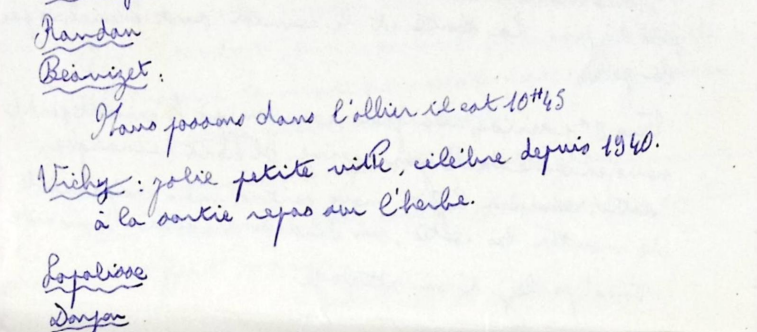 Randan
Béavizet :
Nous passons dans l'allier il est 10H45
Vichy : jolie petite ville, célèbre depuis 1940.
à la sortie repas sur l'herbe.
Lapalisse
Donjon